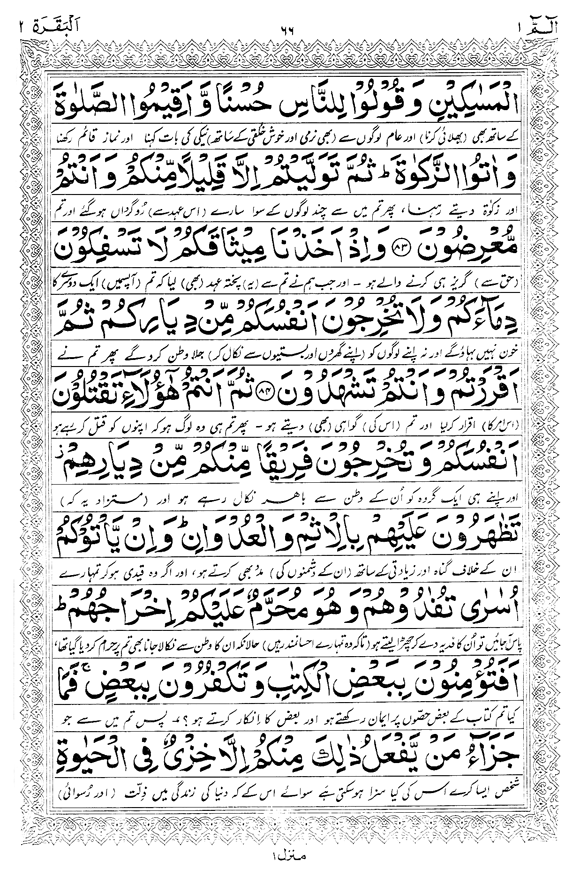 الٓمّٓ ١ ٦٦ اَلْبَقَرَة ٢
الْمَسٰكِيْنِ وَ قُوْلُوْا لِلنَّاسِ حُسْنًا وَّ اَقِيْمُوا الصَّلٰوةَ
کے ساتھ بھی (بھلائی کرنا) اور عام لوگوں سے (بھی نرمی اور خوش خُلقی کے ساتھ) نیکی کی بات کہنا اور نماز قائم رکھنا
وَ اٰتُوا الزَّكٰوةَ ؕ ثُمَّ تَوَلَّيْتُمْ اِلَّا قَلِيْلًا مِّنْكُمْ وَ اَنْتُمْ
اور زکوٰۃ دیتے رہنا، پھر تم میں سے چند لوگوں کے سوا سارے (اس عہد سے) رُوگرداں ہو گئے اور تم
مُّعْرِضُوْنَ ﴿٨٣﴾ وَ اِذْ اَخَذْنَا مِيْثَاقَكُمْ لَا تَسْفِكُوْنَ
(حق سے) گریز ہی کرنے والے ہو - اور جب ہم نے تم سے (یہ) پختہ عہد (بھی) لیا کہ تم (آپس میں) ایک دوسرے کا
دِمَآءَكُمْ وَ لَا تُخْرِجُوْنَ اَنْفُسَكُمْ مِّنْ دِيَارِكُمْ ثُمَّ
خون نہیں بہاؤ گے اور نہ اپنے لوگوں کو (اپنے گھروں اور بستیوں سے نکال کر) جلا وطن کرو گے پھر تم نے
اَقْرَرْتُمْ وَ اَنْتُمْ تَشْهَدُوْنَ ﴿٨٤﴾ ثُمَّ اَنْتُمْ هٰۤؤُلَآءِ تَقْتُلُوْنَ
(اس امر کا) اقرار کر لیا اور تم (اس کی) گواہی (بھی) دیتے ہو - پھر تم ہی وہ لوگ ہو کہ اپنوں کو قتل کر رہے ہو
اَنْفُسَكُمْ وَ تُخْرِجُوْنَ فَرِيْقًا مِّنْكُمْ مِّنْ دِيَارِهِمْ ؗ
اور اپنے ہی ایک گروہ کو اُن کے وطن سے باہر نکال رہے ہو اور (مستزاد یہ کہ)
تَظٰهَرُوْنَ عَلَيْهِمْ بِالْاِثْمِ وَ الْعُدْوَانِ ؕ وَ اِنْ يَّاْتُوْكُمْ
ان کے خلاف گناہ اور زیادتی کے ساتھ (ان کے دشمنوں کی) مدد بھی کرتے ہو، اور اگر وہ قیدی ہو کر تمہارے
اُسٰرٰى تُفٰدُوْهُمْ وَ هُوَ مُحَرَّمٌ عَلَيْكُمْ اِخْرَاجُهُمْ ؕ
پاس آ جائیں تو اُن کا فدیہ دے کر چھڑا لیتے ہو (تاکہ وہ تمہارے احسان مند رہیں) حالانکہ ان کا وطن سے نکالا جانا بھی تم پر حرام کر دیا گیا تھا،
اَفَتُؤْمِنُوْنَ بِبَعْضِ الْكِتٰبِ وَ تَكْفُرُوْنَ بِبَعْضٍ ۚ فَمَا
کیا تم کتاب کے بعض حصّوں پر ایمان رکھتے ہو اور بعض کا انکار کرتے ہو؟ پس تم میں سے جو
جَزَآءُ مَنْ يَّفْعَلُ ذٰلِكَ مِنْكُمْ اِلَّا خِزْيٌ فِي الْحَيٰوةِ
شخص ایسا کرے اس کی کیا سزا ہو سکتی ہے سوائے اس کے کہ دنیا کی زندگی میں ذِلّت (اور رُسوائی)
منزل ١